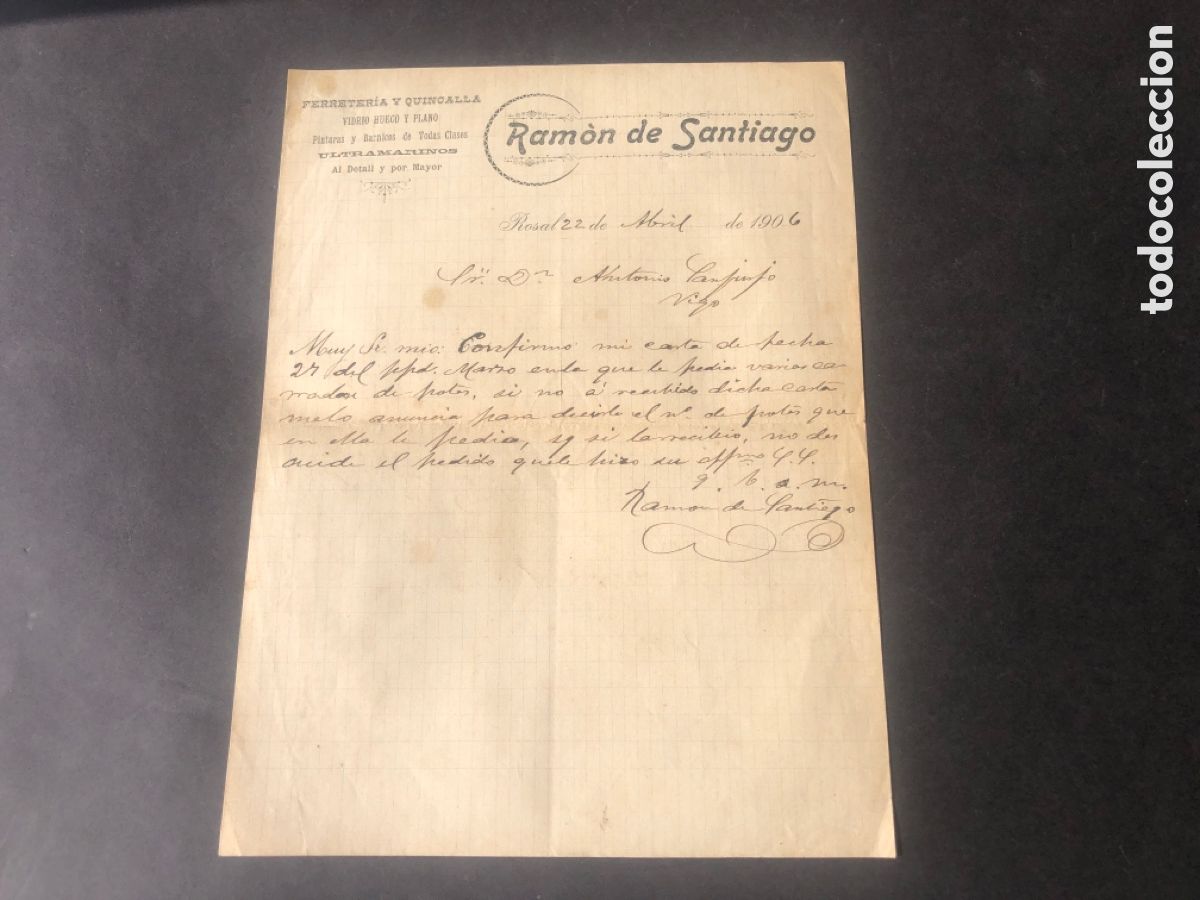 FERRETERÍA Y QUINCALLA
VIDRIO HUECO Y PLANO
Pinturas y Barnices de Todas Clases
ULTRAMARINOS
Al Detall y por Mayor
Ramòn de Santiago
Rosal 22 de Abril de 1906
Sr. Dn Antonio Sanjurjo
Vigo
Muy Sr. mio: Confirmo mi carta de fecha
27 del ppd. Marzo enla que le pedia varios ca
rradas de potes, si no á recibido dicha carta
melo anuncia para decirle el nº. de potes que
en ella le pedia, y si la recibio, no des
cuide el pedido quele hizo su affmo S.S.
q. b. s. m.
Ramon de Santiago
todocoleccion